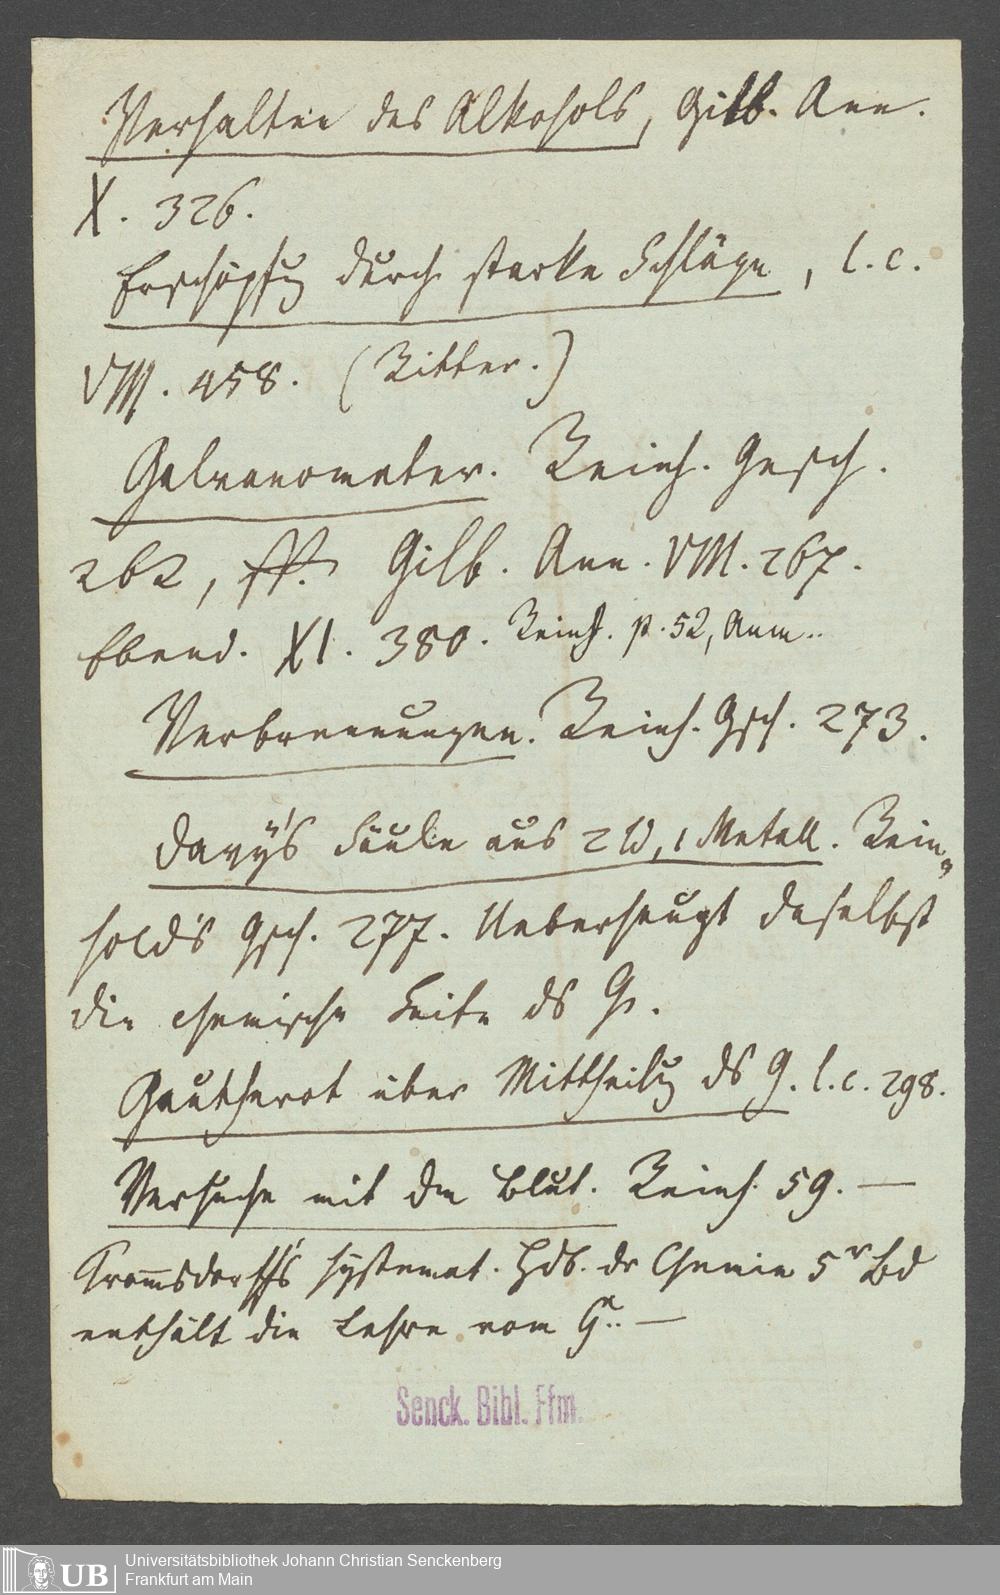 Verhalten des Alkohols, Gilb. Ann.
X. 326.
Erschöpfg durch starke Schläge, l. c.
VIII. 458. (Ritter.)
Galvanometer. Reinh. Gesch.
262, ff. Gilb. Ann. VIII. 267.
Ebend. XI. 380. Reinh. p. 52, Anm..
Verbrennungen. Reinh. Gsch. 273.
Davy's Säule aus 2 W, 1 Metall. Rein-
hold's Gsch. 277. Ueberhaupt daselbst
die chemische Seite ds Gs.
Gautherot über Mittheilg ds G. l. c. 298.
Versuche mit dem Blut. Reinh. 59. —
Trommsdorff's systemat. Hdb. dr Chemie 5r Bd
enthält die Lehre vom G.. —
Senck. Bibl. Ffm.
UB
Universitätsbibliothek Johann Christian Senckenberg
Frankfurt am Main